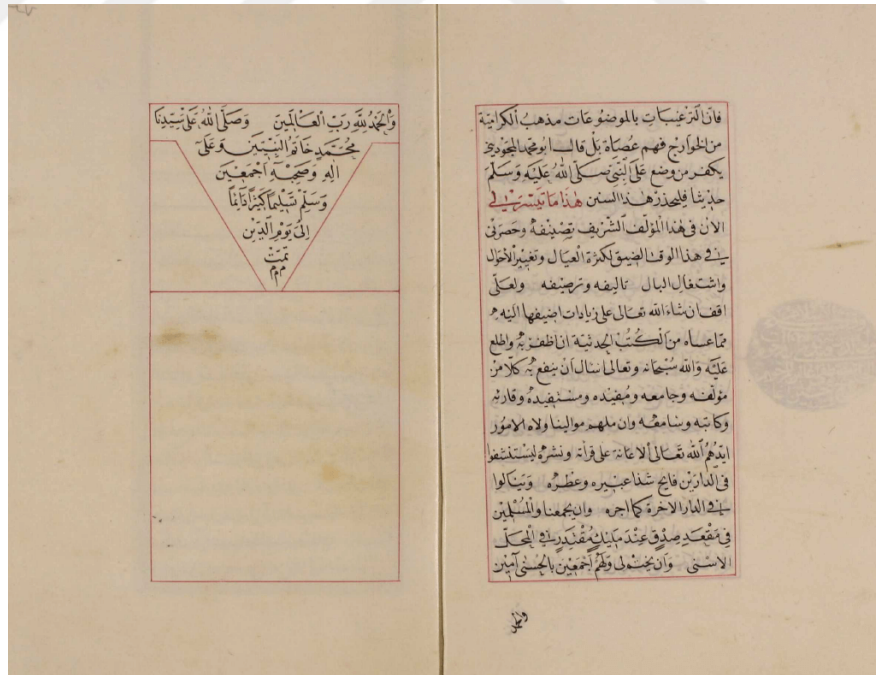 فان الترغيبات بالموضوعات مذهب الكرامية
من الخوارج فهم عصاة بل قال ابو محمد الجويني
يكفر من وضع على النبي صلى الله عليه وسلم
حديثا فليحذر هذا السنن هذا ما تيسر لي
الان في هذا المؤلف الشريف تصنيفه وحصرني
في هذا الوقت الضيق لكثرة العيال وتغيير الاحوال
واشتغال البال تاليفه وترصيفه ولعلى
اقف ان شاء الله تعالى على زيادات اضيفها اليه
مما عساه من الكتب الحديثة انا ظفر به واطلع
عليه والله سبحانه وتعالى اسال ان ينفع به كلا من
مؤلفه وجامعه ومفيده ومستفيده وقارئه
وكاتبه وسامعه وان ملهم موالينا ولاه الامور
ايدهم الله تعالى الاعانة على قرأته ونشره ليستنشقوا
في الدارين فايح شذا عبيره وعطره وينالوا
في الدار الاخرة كما اجره وان يجمعنا والمسلمين
في مقعد صدق عند مليك مقتدر في المحل
الاسنى وان يختم لى ولهم اجمعين بالحسنى آمين
والحمد
وَالْحَمْدُ لِلَّهِ رَبِّ الْعَالَمِينَ وَصَلَّى اللهُ عَلَى سَيِّدِنَا
مُحَمَّدٍ خَاتَمِ النَّبِيِّينَ وَعَلَى
الِهِ وَصَحْبِهِ اَجْمَعِينَ
وَسَلَّمَ تَسْلِيمًا كَثِيرًا دَائِمًا
اِلَى يَوْمِ الدِّينِ
تمت
م م م